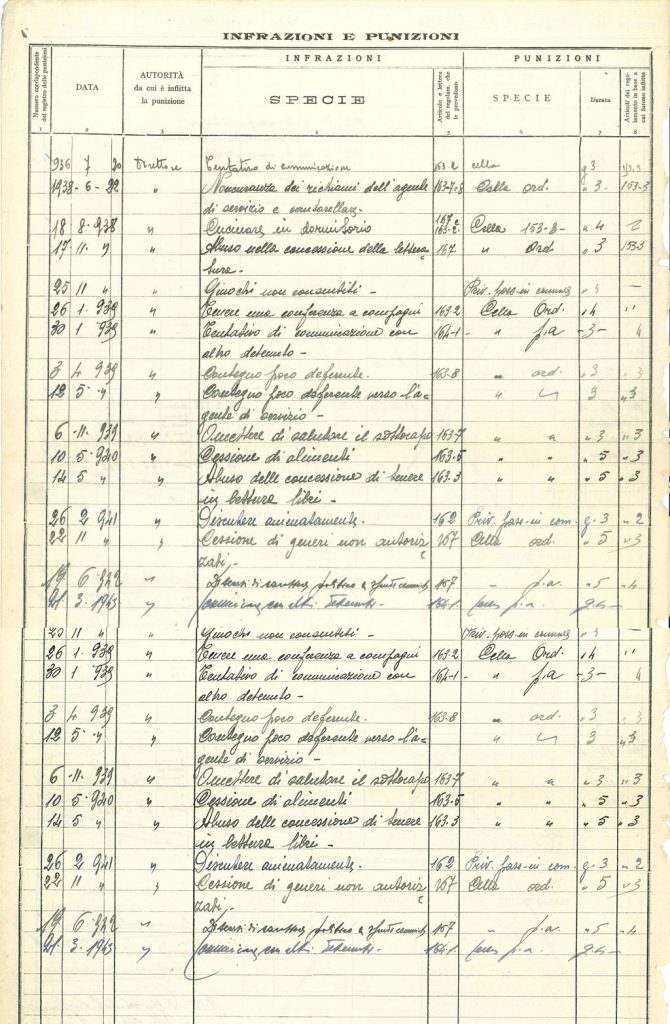 INFRAZIONI E PUNIZIONI
Numero corrispondente del registro delle punizioni
DATA
AUTORITÀ da cui è inflitta la punizione
INFRAZIONI
SPECIE
Articolo e lettera del regolam. che le prevedono
PUNIZIONI
SPECIE
Durata
Articoli del regolamento in base a cui furono inflitte
1 2 3 4 5 6 7 8
936 7 20 Direttore Tentativo di comunicazione 163-2 cella g 3 153.3
1938-6-22 " Noncuranza dei richiami dell'agente 163-7-8 Cella ord. " 3- 153-3
di servizio e canterellare.
18 8-938 " Cucinare in dormitorio 163-2- Cella 153-3- " 4
17 11. " " Abuso nella concessione della lettera 167 " Ord " 3 153-3
tura-
25 11 " " Giuochi non consentiti - Priv. pass-in comune " -
26 1. 939 " Tenere una conferenza a compagni 163-2 Cella Ord. " 4 "
30 1 939 " Tentativo di comunicazione con 164-1- " p.a -3- 4
altro detenuto -
3 4 939 " Contegno poco deferente. 163-8 " ord. " 3 " 3
12 5- " " Contegno poco deferente verso l'a=
gente di servizio - " 3 " 3
6-11. 939 " Omettere di salutare il sottocapo 163-7 " " " 3 " 3
10 5-940 " Cessione di alimenti 163-5 " " " 5 " 3
14 5 " " Abuso delle concessione di tenere 163.3 " " " 5 " 3
in lettura libri -
26 2 941 " Discutere animatamente. 162 Priv. pass-in com. g-3 " 2
22 11 " " Cessione di generi non autoriz 167 Cella ord. " 5 " 3
zati.-
6-942 " Discorsi di politico 157 " p.a. " 5 " 4
21. 3-1943 " comunicazione con altri detenuti 164-1. p.a.
11 " " Giuochi non consentiti - Priv. poss-in comune " -
26 1. 939 " Tenere una conferenza a compagni 163-2 Cella Ord. " 4 "
30 1 939 " Tentativo di comunicazione con 164-1- " p.a -3- 4
altro detenuto -
3 4 939 " Contegno poco deferente. 163-8 " ord. " 3 " 3
12 5- " " Contegno poco deferente verso l'a=
gente di servizio - " 3 " 3
6-11. 939 " Omettere di salutare il sottocapo 163-7 " " " 3 " 3
10 5-940 " Cessione di alimenti 163-5 " " " 5 " 3
14 5 " " Abuso delle concessione di tenere 163.3 " " " 5 " 3
in lettura libri -
26 2 941 " Discutere animatamente. 162 Priv. pass-in com. g-3 " 2
22 11 " " Cessione di generi non autoriz 167 Cella ord. " 5 " 3
zati.-
6-942 " Discorsi di politico 157 " p.a. " 5 " 4
21. 3-1943 " comunicazione con altri detenuti 164-1. p.a.